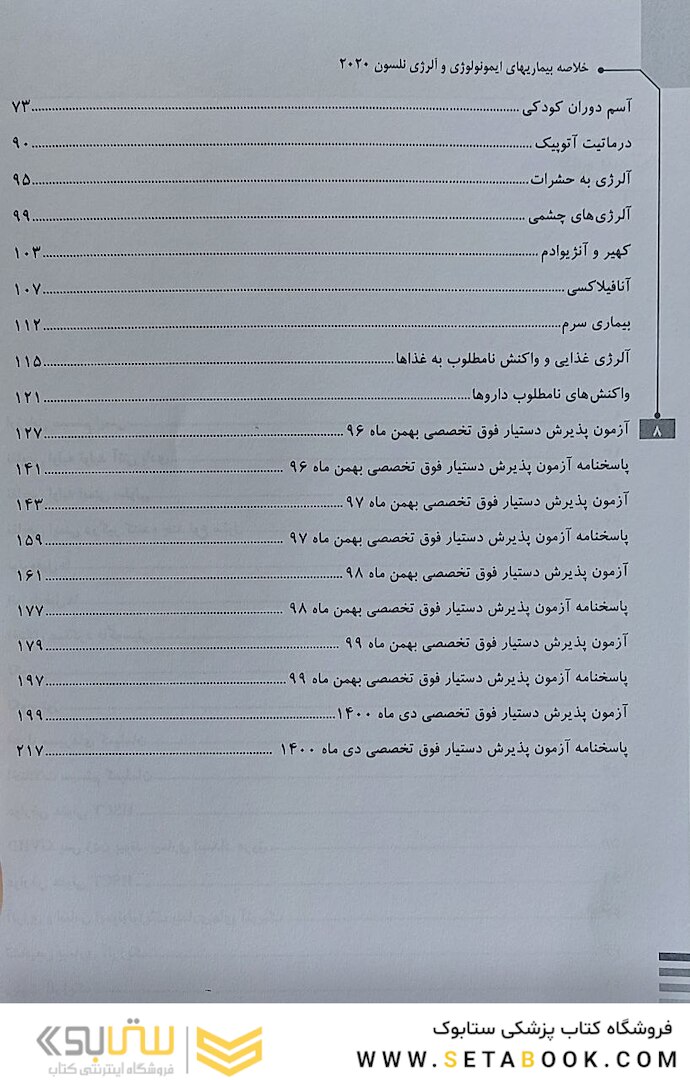 خلاصه بیماریهای ایمونولوژی و آلرژی نلسون ۲۰۲۰
آسم دوران کودکی ........ ۷۳
درماتیت آتوپیک ........ ۹۰
آلرژی به حشرات ........ ۹۵
آلرژی‌های چشمی ........ ۹۹
کهیر و آنژیوادم ........ ۱۰۳
آنافیلاکسی ........ ۱۰۷
بیماری سرم ........ ۱۱۲
آلرژی غذایی و واکنش نامطلوب به غذاها ........ ۱۱۵
واکنش‌های نامطلوب داروها ........ ۱۲۱
آزمون پذیرش دستیار فوق تخصصی بهمن ماه ۹۶ ........ ۱۲۷
۸
پاسخنامه آزمون پذیرش دستیار فوق تخصصی بهمن ماه ۹۶ ........ ۱۴۱
آزمون پذیرش دستیار فوق تخصصی بهمن ماه ۹۷ ........ ۱۴۳
پاسخنامه آزمون پذیرش دستیار فوق تخصصی بهمن ماه ۹۷ ........ ۱۵۹
آزمون پذیرش دستیار فوق تخصصی بهمن ماه ۹۸ ........ ۱۶۱
پاسخنامه آزمون پذیرش دستیار فوق تخصصی بهمن ماه ۹۸ ........ ۱۷۷
آزمون پذیرش دستیار فوق تخصصی بهمن ماه ۹۹ ........ ۱۷۹
پاسخنامه آزمون پذیرش دستیار فوق تخصصی بهمن ماه ۹۹ ........ ۱۹۷
آزمون پذیرش دستیار فوق تخصصی دی ماه ۱۴۰۰ ........ ۱۹۹
پاسخنامه آزمون پذیرش دستیار فوق تخصصی دی ماه ۱۴۰۰ ........ ۲۱۷
فروشگاه کتاب پزشکی ستابوک
WWW.SETABOOK.COM
ستابوک
فروشگاه اینترنتی کتاب